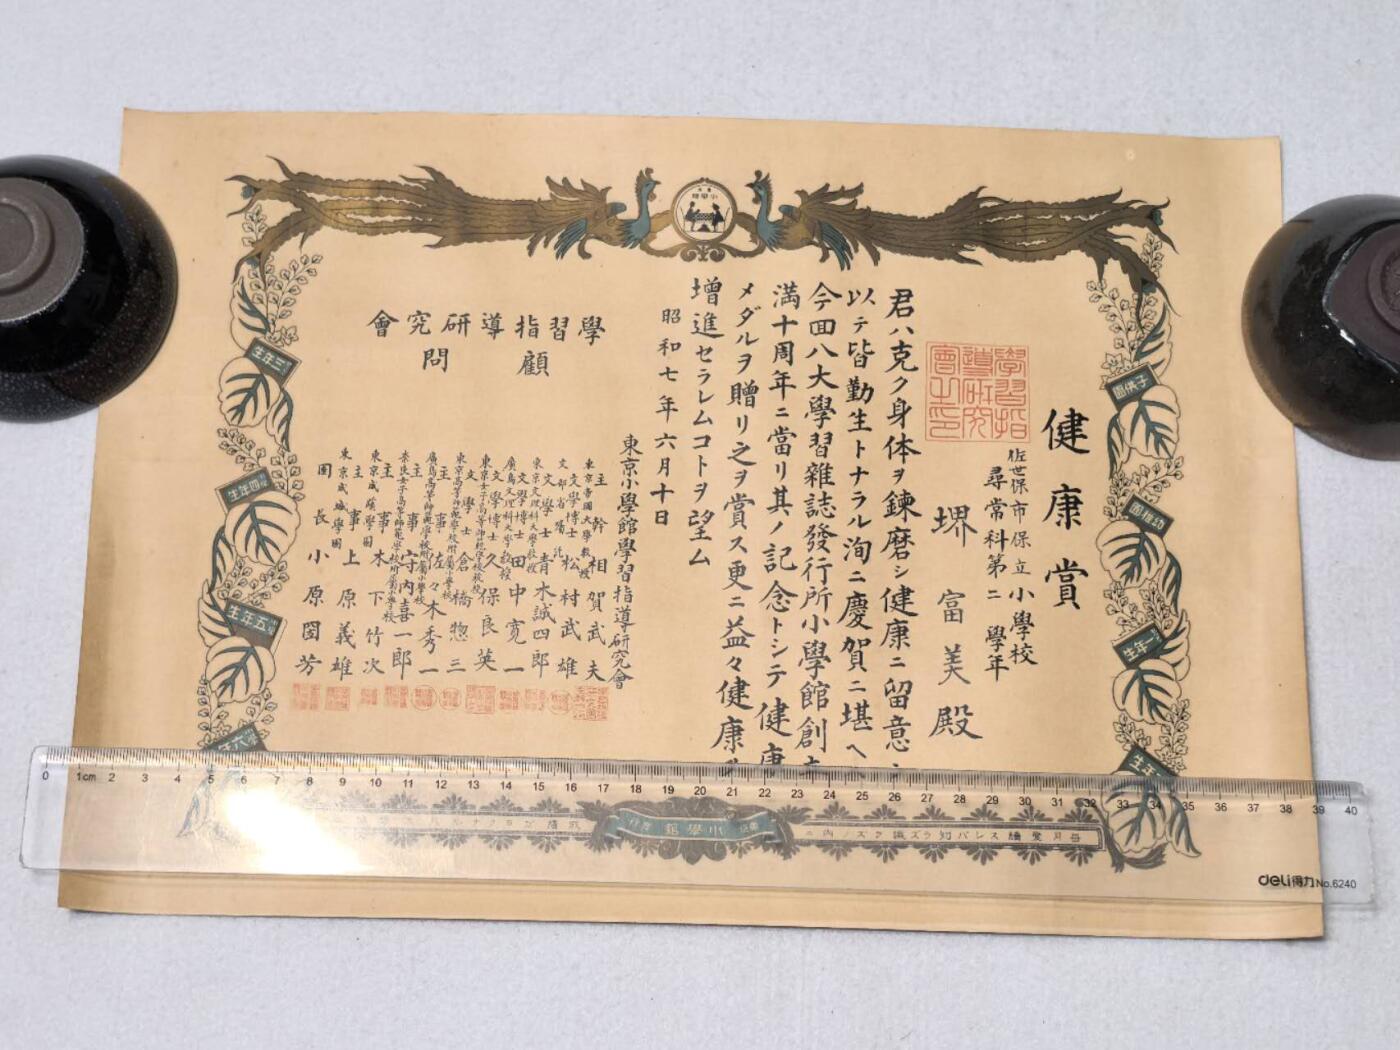 健康賞
佐世保市保立小學校
尋常科第二學年
堺富美殿
學習指導研究會之印
君ハ克ク身体ヲ鍊磨シ健康ニ留意
以テ皆勤生トナラル洵ニ慶賀ニ堪ヘ
今回八大學習雜誌發行所小學館創
満十周年ニ當リ其ノ記念トシテ健康
メダルヲ贈リ之ヲ賞ス更ニ益々健康
增進セラレムコトヲ望ム
昭和七年六月十日
東京小學館學習指導研究會
主幹 相賀武夫
學習指導研究會
顧問
東京帝國大學教授
文學博士 松村武雄
文部省囑託
文學士 青木誠四郎
東京文理科大學教授
文學博士 田中寛一
廣島文理科大學教授
文學博士 久保良英
東京女子高等師範學校教授
文學士 倉橋惣三
東京高等師範學校附屬小學校
主事 佐々木秀一
廣島高等師範學校附屬小學校
主事 守內喜一郎
奈良女子高等師範學校附屬小學校
主事 木下竹次
東京成蹊學園
主事 上原義雄
東京成城學園
園長 小原國芳
小學館
子供園
幼稚園
一年生
二年生
三年生
四年生
五年生
六年
每月愛讀スレバ知ラズ識ラズノ內ニ
小學館
0 1cm 2 3 4 5 6 7 8 9 10 11 12 13 14 15 16 17 18 19 20 21 22 23 24 25 26 27 28 29 30 31 32 33 34 35 36 37 38 39 40
deli得力 No.6240